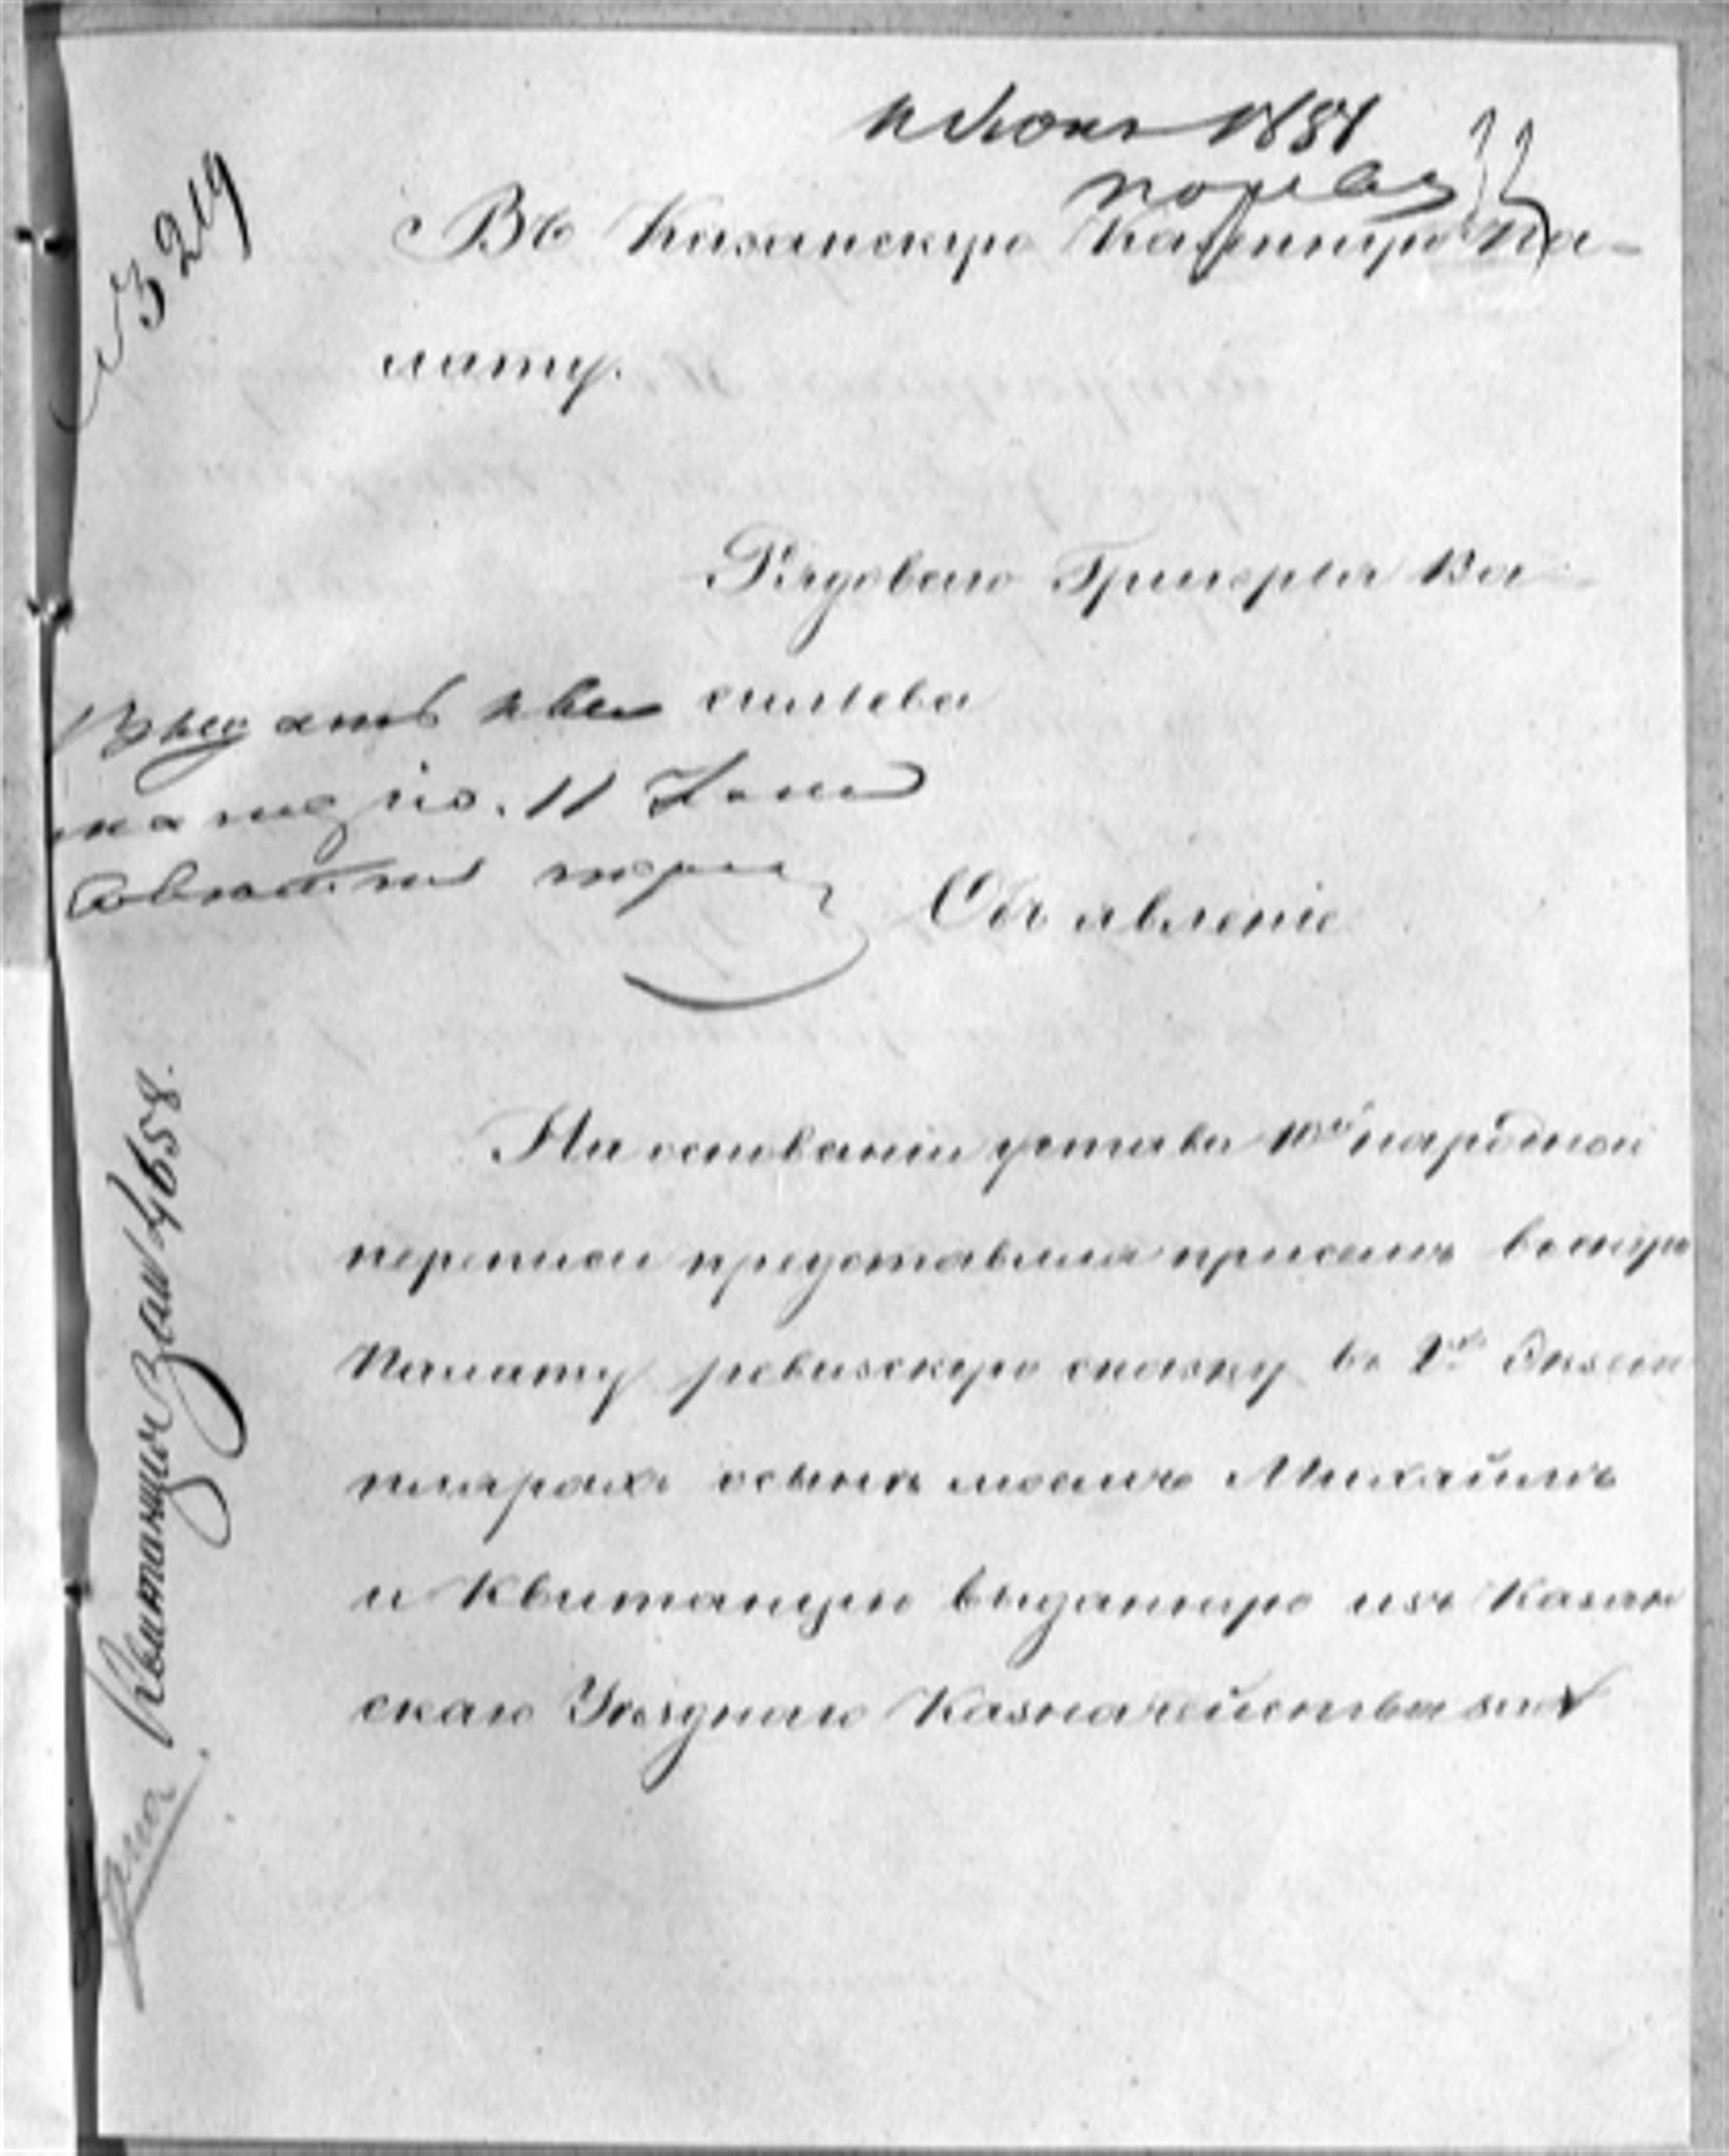 11 Июня 1858
№ 3219
Въ Казанскую Казенную Па-
лату.
Рядоваго Григорья Ва-
сильева
Выдать кви
танцію. 11 Іюня
Объявленіе
На основаніи устава 10й народной
переписи представляя при семъ въ оную
Палату ревизскую сказку въ 2хъ Экзем
плярахъ о сынѣ моемъ Михайлѣ
и Квитанцію выданную изъ Казан
скаго Уѣзднаго Казначейства
Квитанція за № 4658.